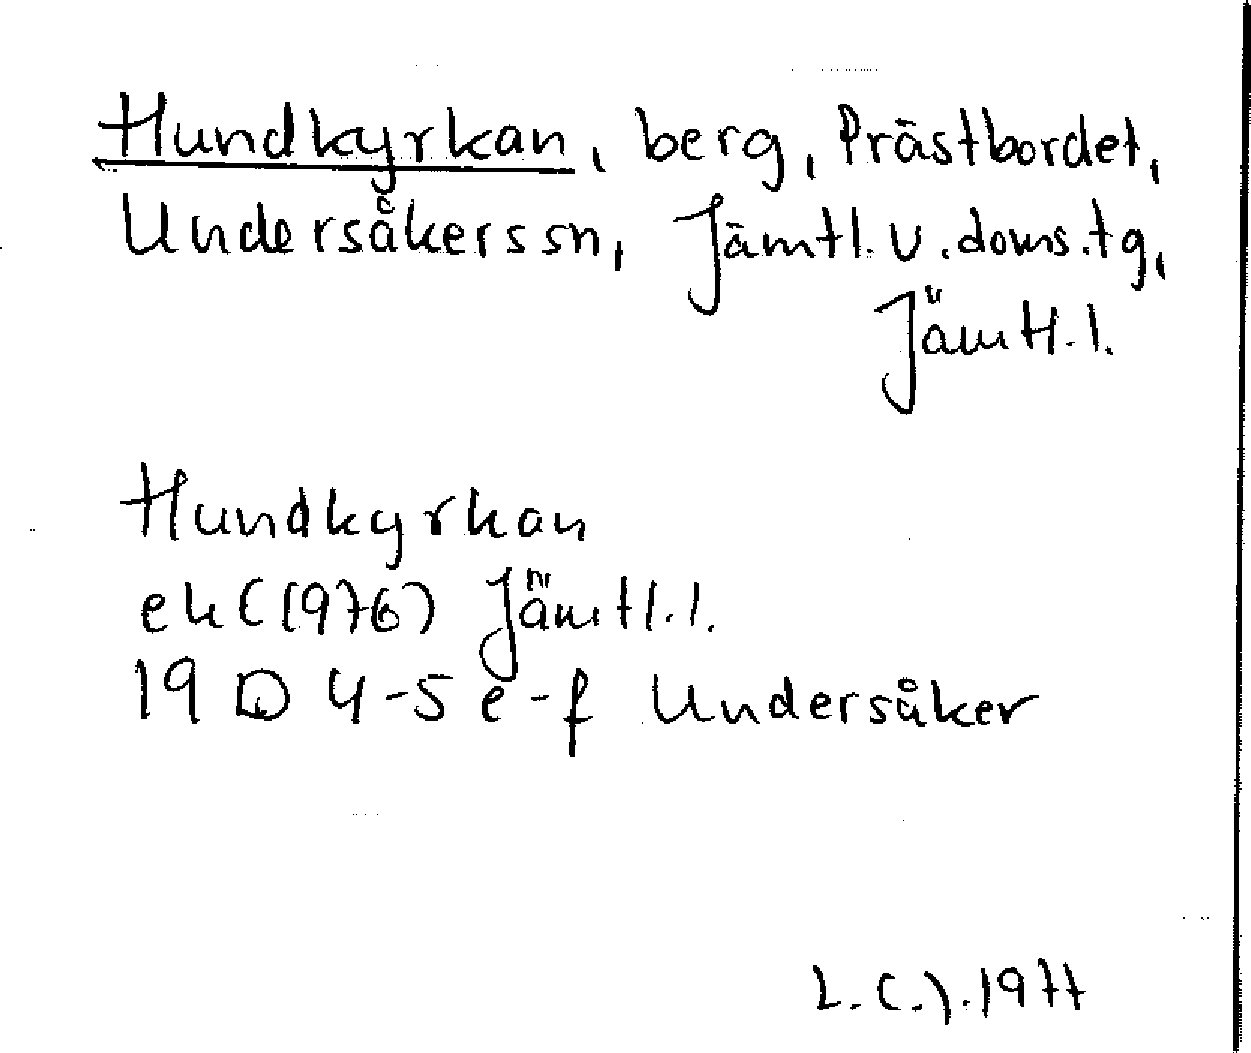 Hundkyrkan, berg, Prästbordet,
Undersåkers sn, Jämtl. v. doms. tg,
Jämtl. l.
Hundkyrkan
ek (1976) Jämtl. l.
19 D 4-5 e-f Undersåker
L. C. J. 1977